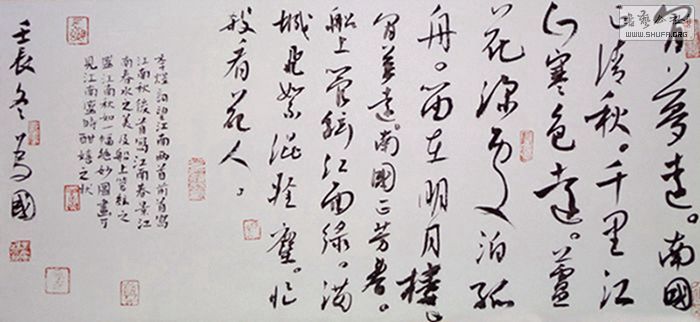 閒夢遠。南國
正清秋。千里江
山寒色遠。蘆
花深處泊孤
舟。笛在明月樓。
閒夢遠。南國正芳春。
船上管絃江面綠。滿
城飛絮混輕塵。忙
殺看花人。
李煜詞望江南兩首前首寫
江南秋後首寫江南春景江
南春水之美及船上管絃之
盛江南秋如一幅絕妙圖畫可
見江南盛時酣嬉之狀
壬辰冬國
书艺公社
WWW.SHUFA.ORG